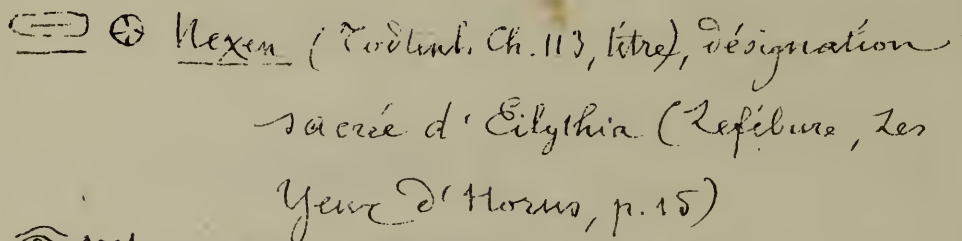 Nexen (Todtenb. Ch. 113, titre), désignation
sacrée d'Eilythia (Lefébure, Les
Yeux d'Horus, p. 15)